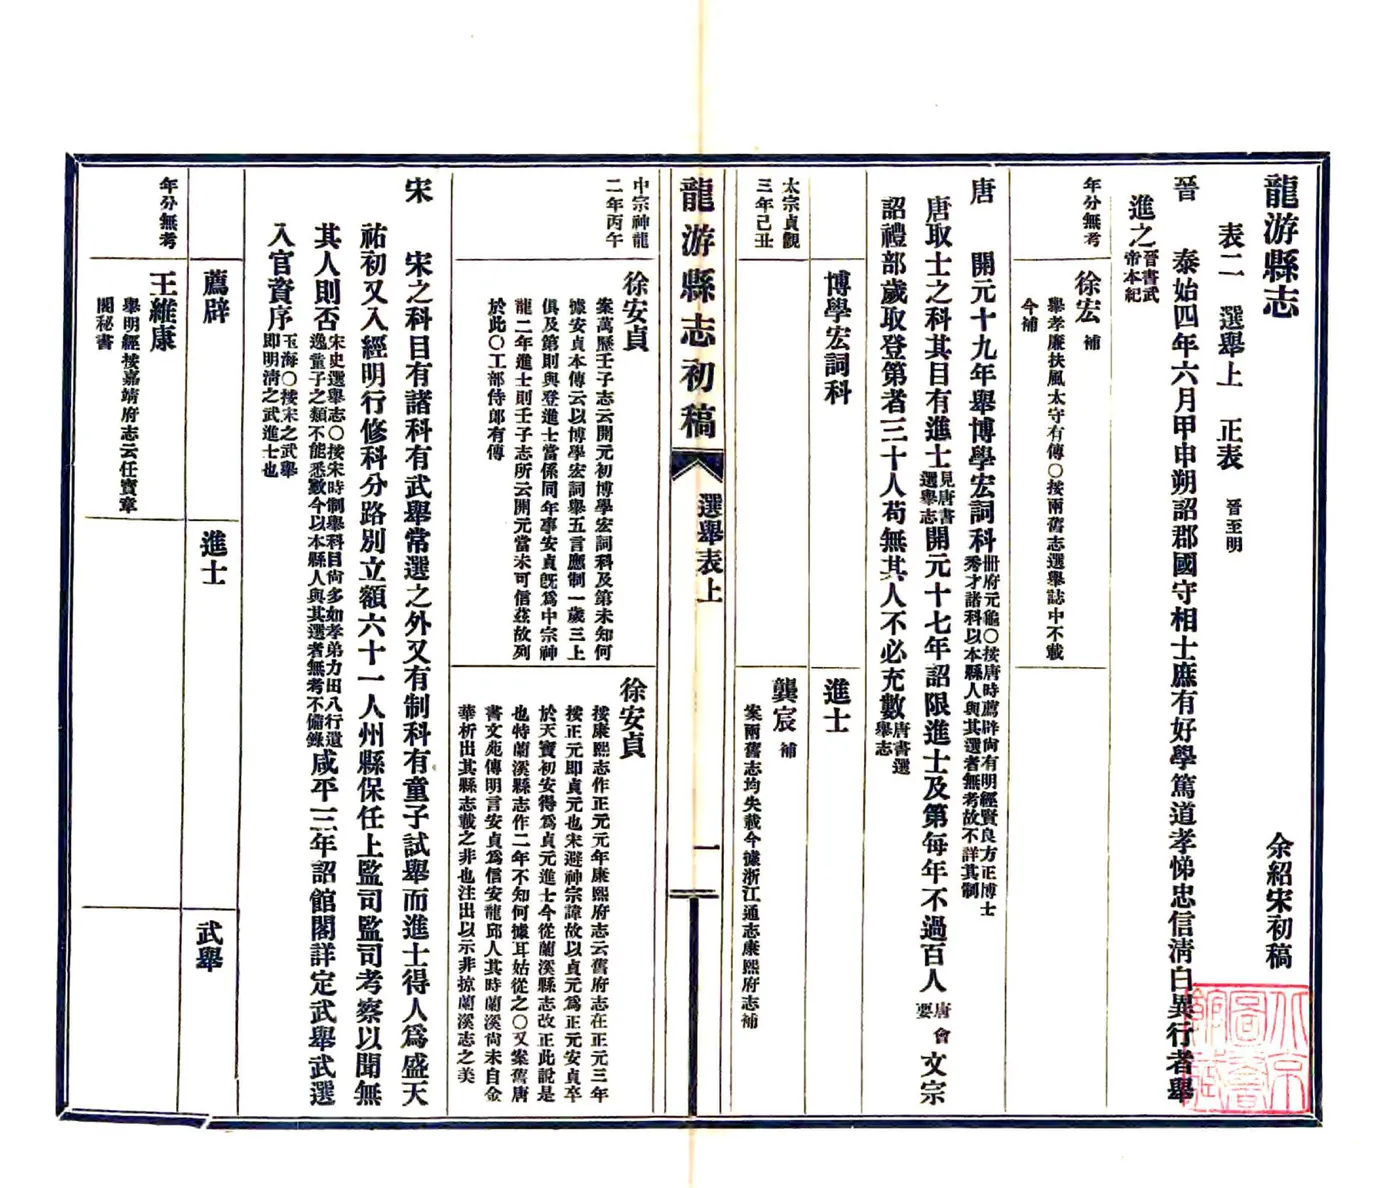 龍游縣志
余紹宋初稿
表二　選舉上　正表　晉至明
晉　泰始四年六月甲申朔詔郡國守相士庶有好學篤道孝悌忠信清白異行者舉
進之晉書武帝本紀
年分無考
徐宏　補
舉孝廉扶風太守有傳○按兩舊志選舉誌中不載
今補
唐　開元十九年舉博學宏詞科冊府元龜○按唐時薦辟尚有明經賢良方正博士秀才諸科以本縣人與其選者無考故不詳其制
唐取士之科其目有進士見唐書選舉志開元十七年詔限進士及第每年不過百人唐會要文宗
詔禮部歲取登第者三十人苟無其人不必充數唐書選舉志
博學宏詞科
進士
太宗貞觀
三年己丑
龔宸　補
案兩舊志均失載今據浙江通志康熙府志補
龍游縣志初稿
選舉表上
一
中宗神龍
二年丙午
徐安貞
案萬歷壬子志云開元初博學宏詞科及第未知何
據安貞本傳云以博學宏詞舉五言應制一歲三上
俱及第則與登進士當係同年事安貞既爲中宗神
龍二年進士則壬子志所云開元當未可信茲故列
於此○工部侍郎有傳
徐安貞
按康熙志作正元元年康熙府志云舊府志在正元三年
按正元即貞元也宋避神宗諱故以貞元爲正元安貞卒
於天寶初安得爲貞元進士今從蘭溪縣志改正此說是
也特蘭溪縣志作二年不知何據耳姑從之○又案舊唐
書文苑傳明言安貞爲信安龍邱人其時蘭溪尚未自金
華析出其縣志載之非也注出以示非掠蘭溪志之美
宋　宋之科目有諸科有武舉常選之外又有制科有童子試舉而進士得人爲盛天
祐初又入經明行修科分路別立額六十一人州縣保任上監司監司考察以聞無
其人則否宋史選舉志○按宋時制舉科目尚多如孝弟力田八行遺逸童子之類不能悉數今以本縣人與其選者無考不備錄咸平三年詔館閣詳定武舉武選
入官資序玉海○按宋之武舉即明清之武進士也
薦辟
進士
武舉
年分無考
王維康
舉明經按嘉靖府志云任寶章
閣秘書